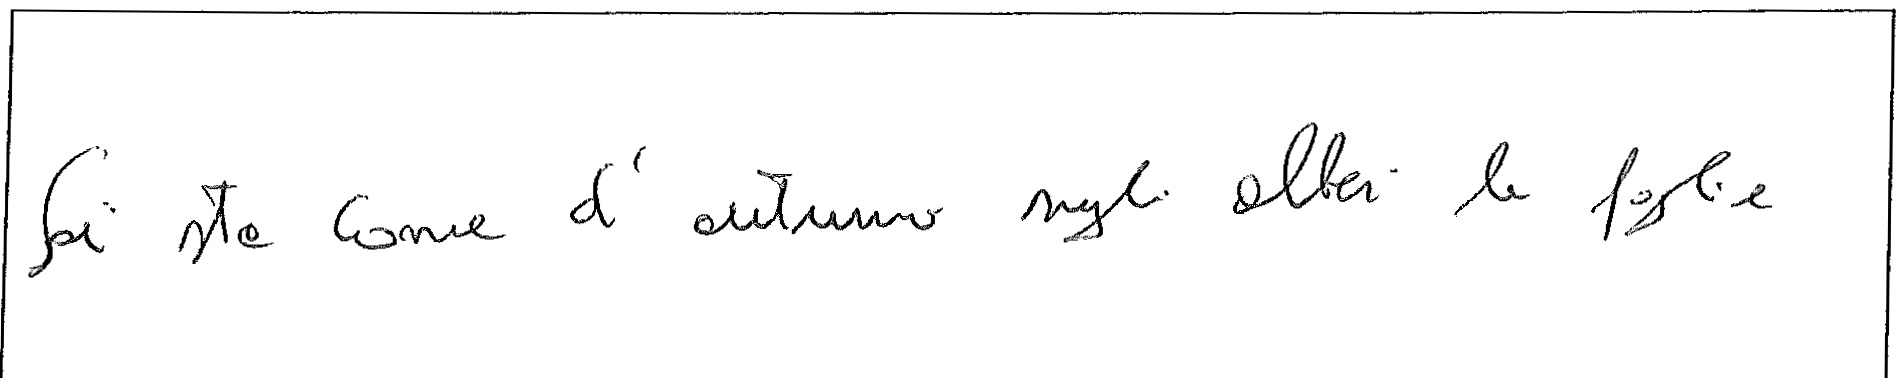 Si sta come d'autunno sugli alberi le foglie